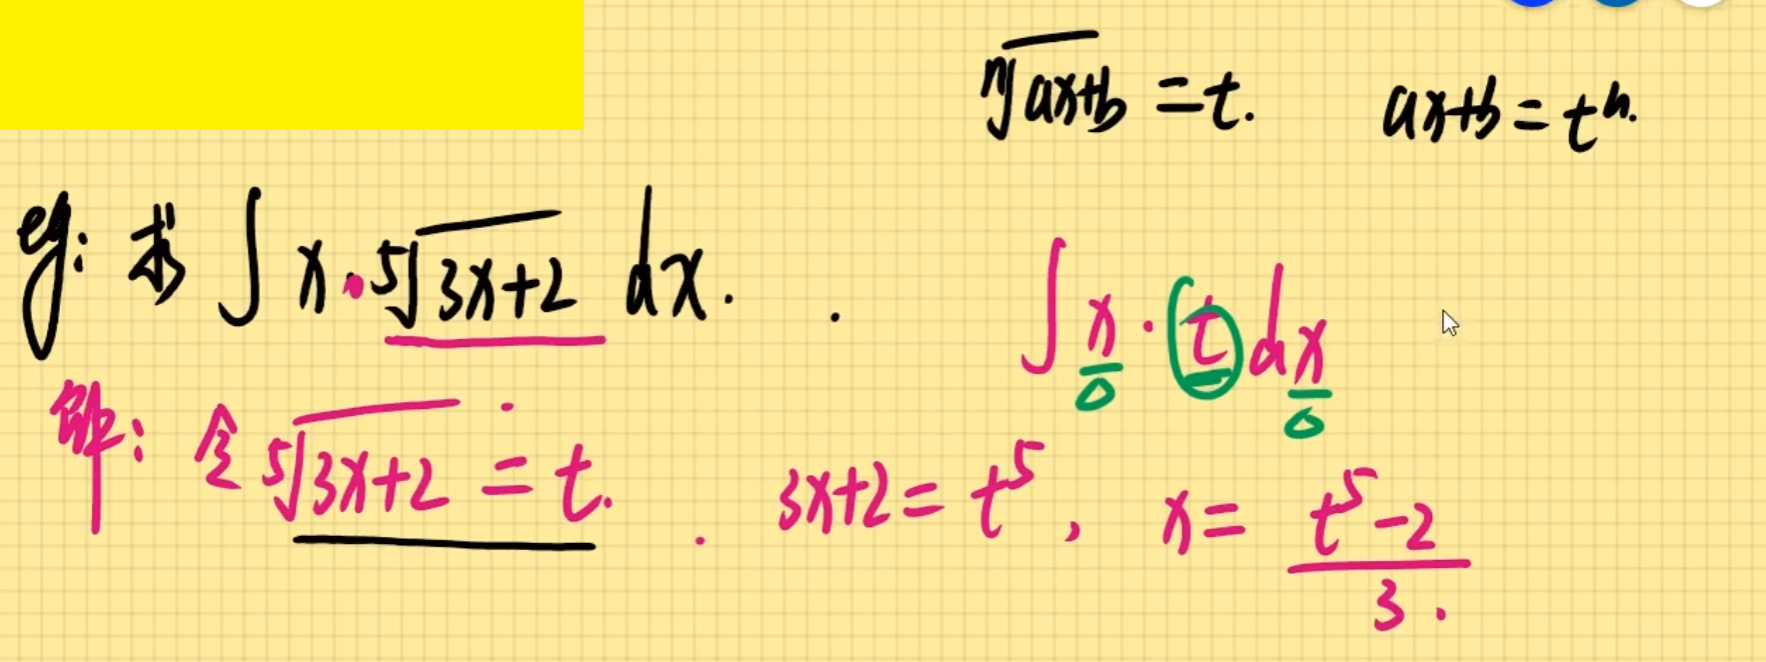 ⁿ√(ax+b) = t. ax+b = tⁿ.
eg: 求 ∫ x · ⁵√(3x+2) dx.
∫ x · t dx
解: 令 ⁵√(3x+2) = t. 3x+2 = t⁵, x = (t⁵-2)/3.